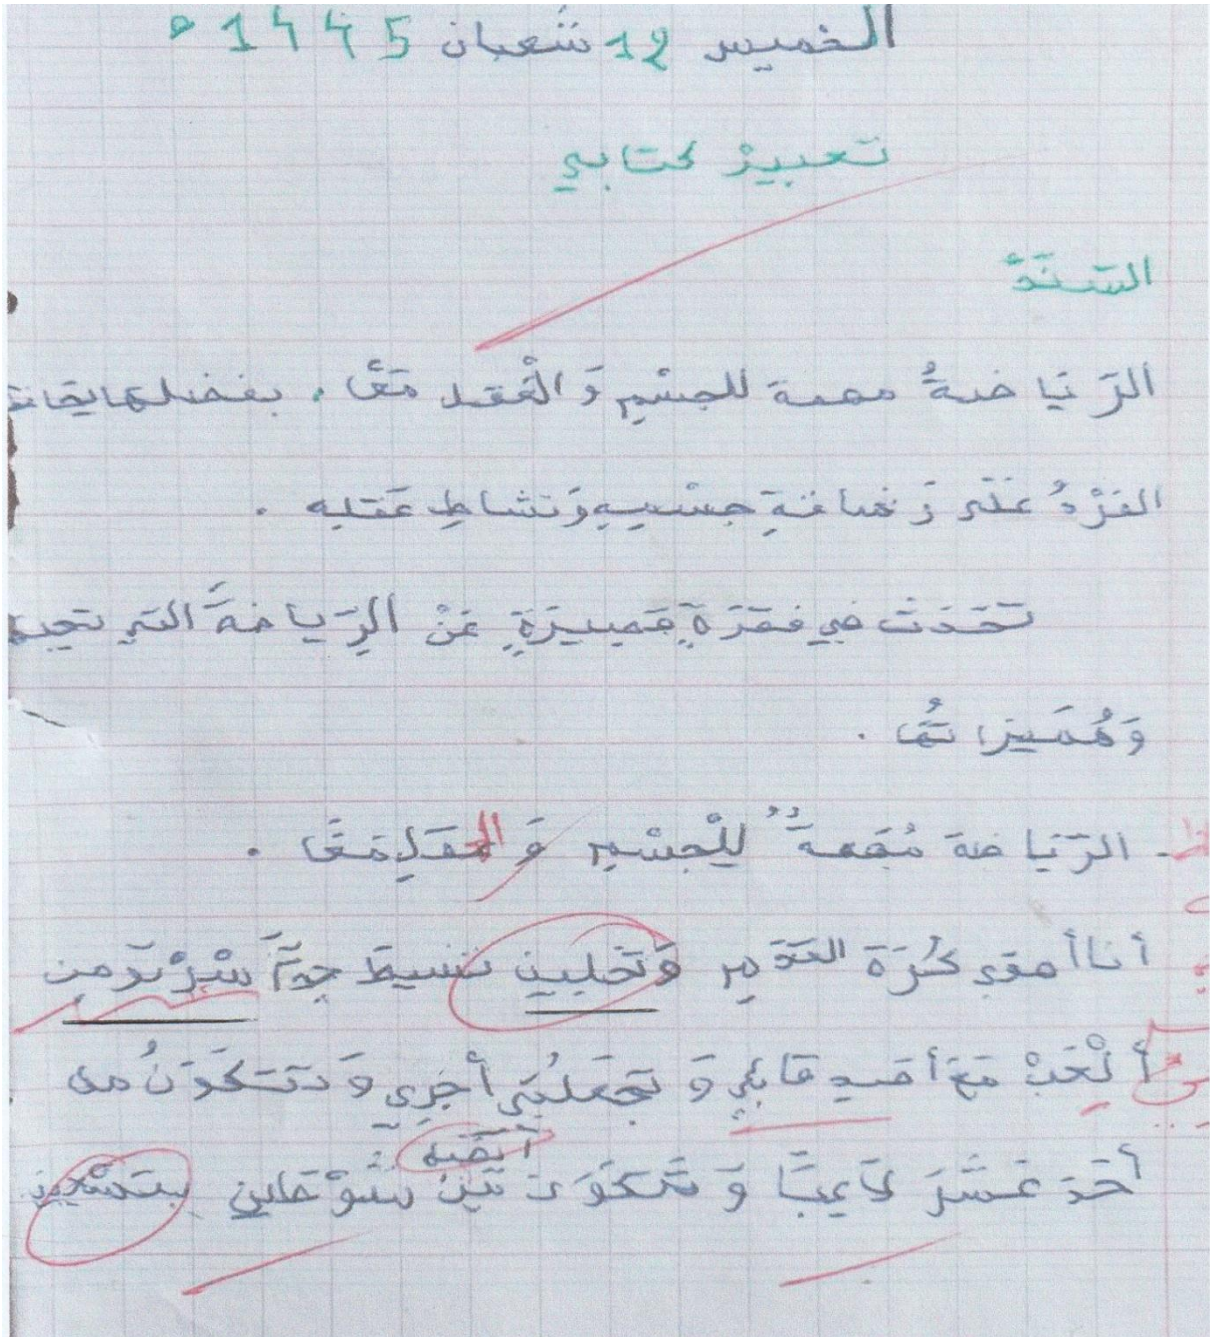 الخميس 12 شعبان 1445 ه
تعبيرْ كتابي
السَّنَدْ
الرِّيَاضةُ مهمة للجسْمِ وَ الْعَقل مَعًا . بفضلها يحافظ
الفَرْدُ عَلَى رَشَاقَةِ جِسْمِهِ وَنشاطِ عَقله .
تَحَدَثْ في فقرَةٍ قَصِيرَةٍ عَنْ الرِّيَاضَةَ التي تحبها
وَمُمَيِزَاتُهَا .
- الرِّيَاضة مُهَمةٌ لِلْجِسْمِ وَ العقلِ مَعًا .
أنا أهوى كُرَة القَدَمِ وَتَخليني نشيطَ جِدًّا
ألْعَبْ مَعَ أصدِقائي وَ تَجعلُنِي أجْرِي وَ تتكَوَنُ من
أحَدَ عَشَرَ لاَعِبًا وَ تَتَكَوَن أيضا مَن شَوْطين